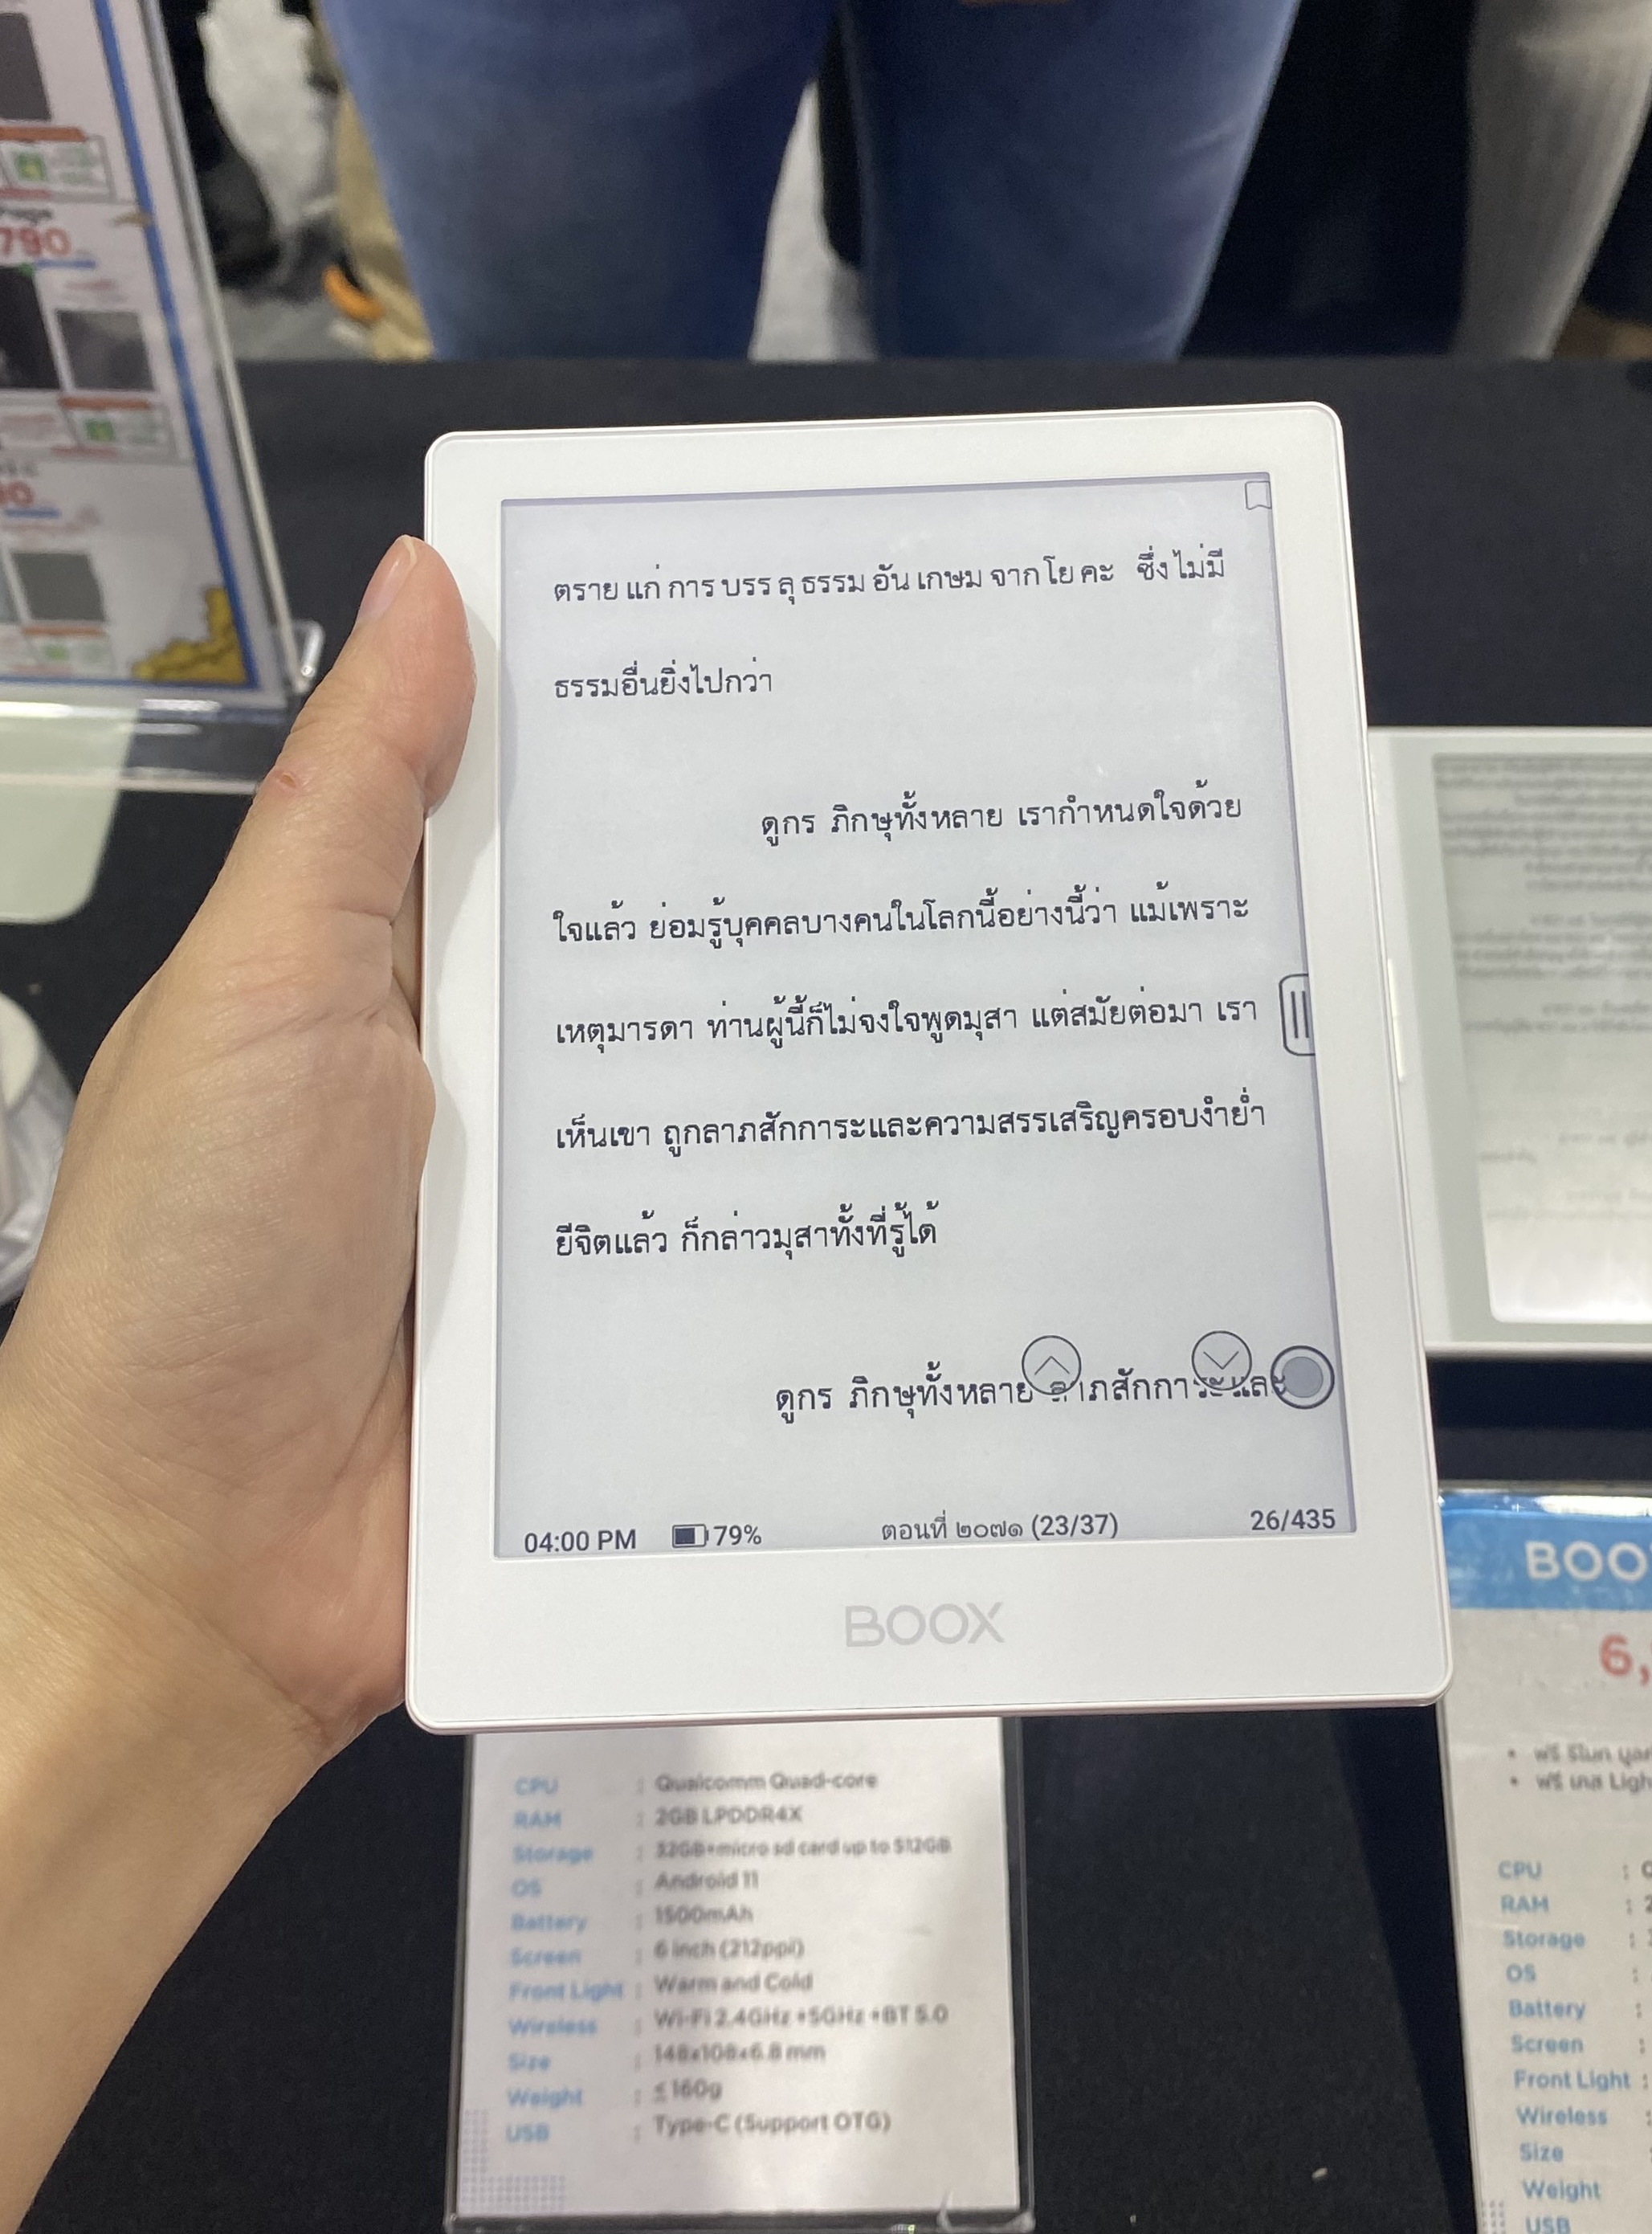 790
ตราย แก่ การ บรร ลุ ธรรม อัน เกษม จาก โย คะ ซึ่ง ไม่มี
ธรรมอื่นยิ่งไปกว่า
ดูกร ภิกษุทั้งหลาย เรากำหนดใจด้วย
ใจแล้ว ย่อมรู้บุคคลบางคนในโลกนี้อย่างนี้ว่า แม้เพราะ
เหตุมารดา ท่านผู้นี้ก็ไม่จงใจพูดมุสา แต่สมัยต่อมา เรา
เห็นเขา ถูกลาภสักการะและความสรรเสริญครอบงำย่ำ
ยีจิตแล้ว ก็กล่าวมุสาทั้งที่รู้ได้
ดูกร ภิกษุทั้งหลาย ลาภสักการะและ
04:00 PM 79% ตอนที่ ๒๐๗๑ (23/37) 26/435
BOOX
CPU : Qualcomm Quad-core
RAM : 2GB LPDDR4X
Storage : 32GB+micro sd card up to 512GB
OS : Android 11
Battery : 1500mAh
Screen : 6 inch (212ppi)
Front Light : Warm and Cold
Wireless : Wi-Fi 2.4GHz +5GHz +BT 5.0
Size : 148x108x6.8 mm
Weight : ≤160g
USB : Type-C (Support OTG)
BOO
6,
• ฟรี รีโมท
• ฟรี เคส Ligh
CPU :
RAM : 2
Storage :
OS :
Battery :
Screen :
Front Light :
Wireless
Size
Weight
USB